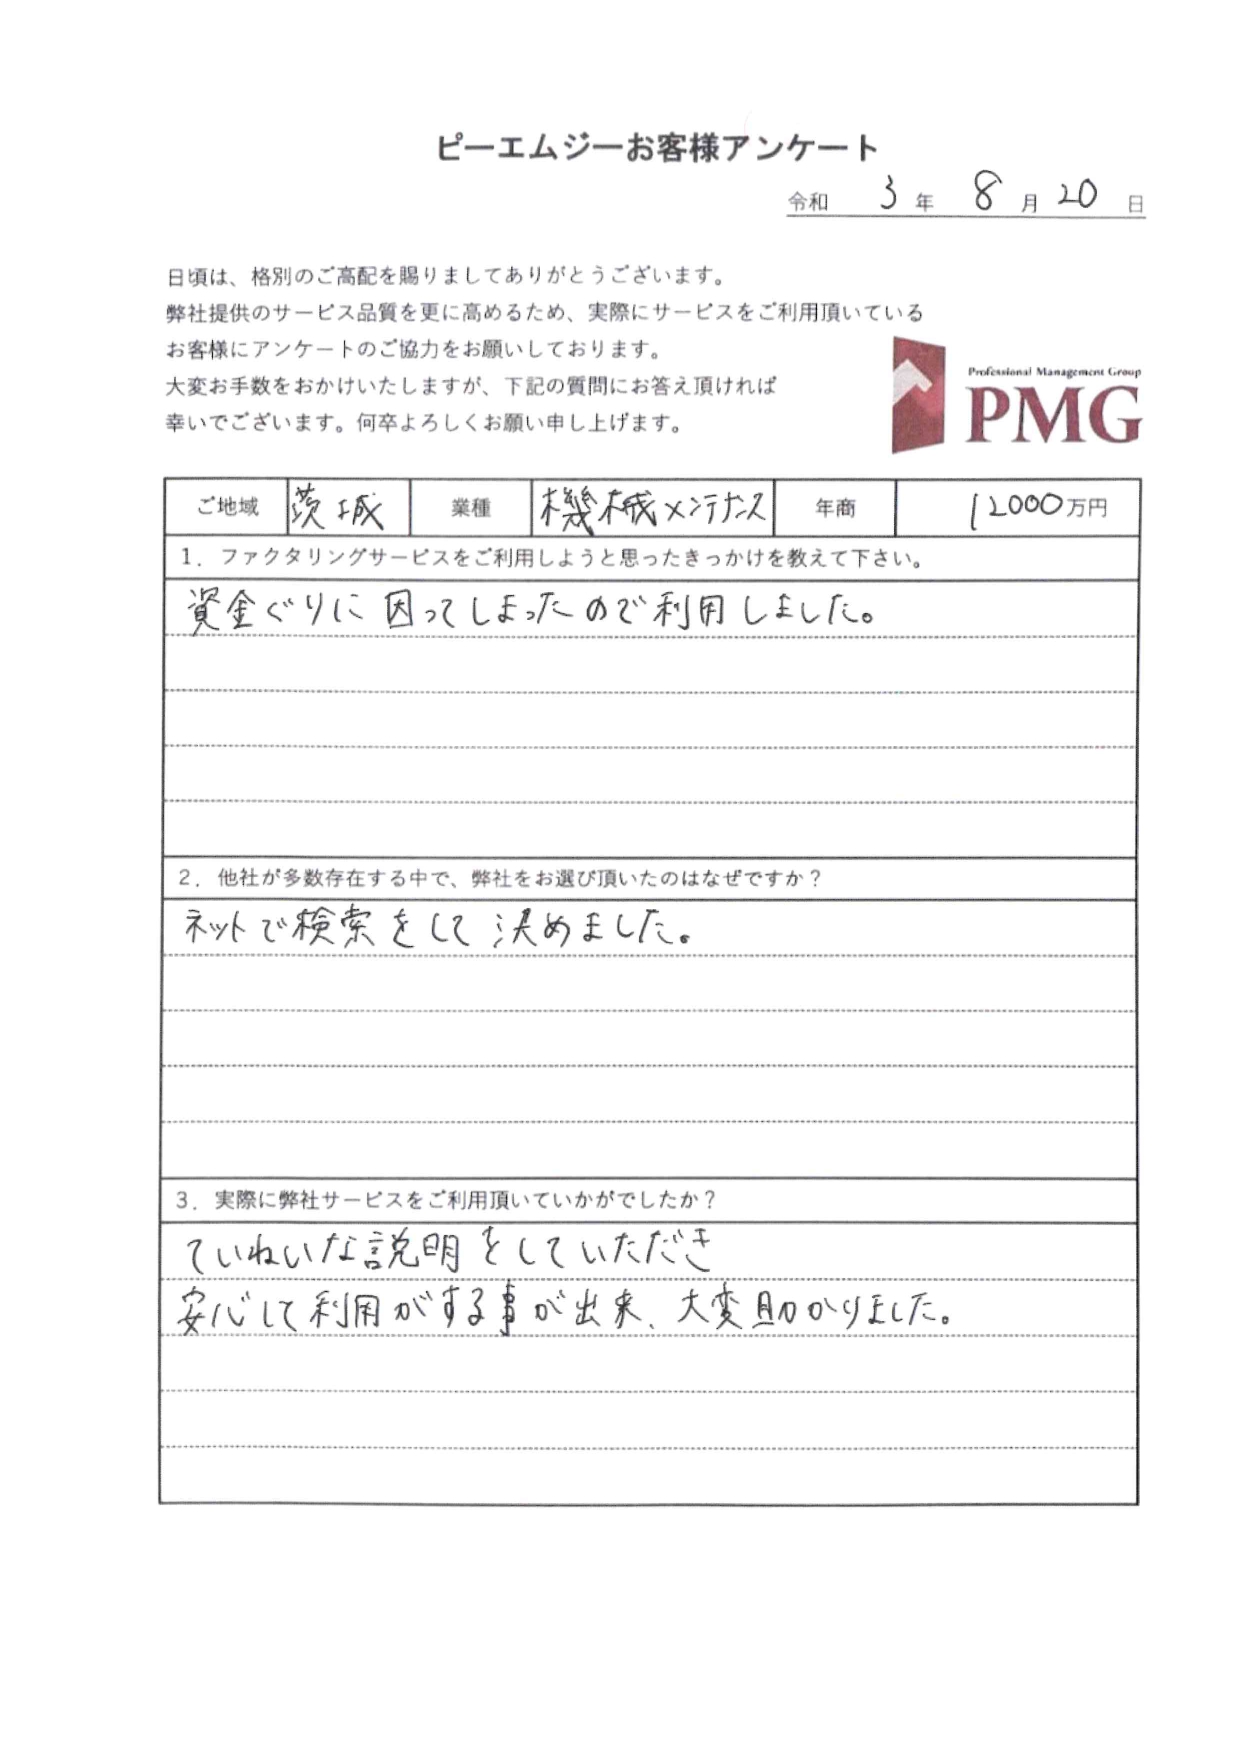 ピーエムジーお客様アンケート
令和 3 年 8 月 20 日
日頃は、格別のご高配を賜りましてありがとうございます。
弊社提供のサービス品質を更に高めるため、実際にサービスをご利用頂いている
お客様にアンケートのご協力をお願いしております。
大変お手数をおかけいたしますが、下記の質問にお答え頂ければ
幸いでございます。何卒よろしくお願い申し上げます。
Professional Management Group
PMG
ご地域 茨城 業種 機械メンテナンス 年商 12000万円
1．ファクタリングサービスをご利用しようと思ったきっかけを教えて下さい。
資金ぐりに困ってしまったので利用しました。
2．他社が多数存在する中で、弊社をお選び頂いたのはなぜですか？
ネットで検索をして決めました。
3．実際に弊社サービスをご利用頂いていかがでしたか？
ていねいな説明をしていただき
安心して利用がする事が出来、大変助かりました。